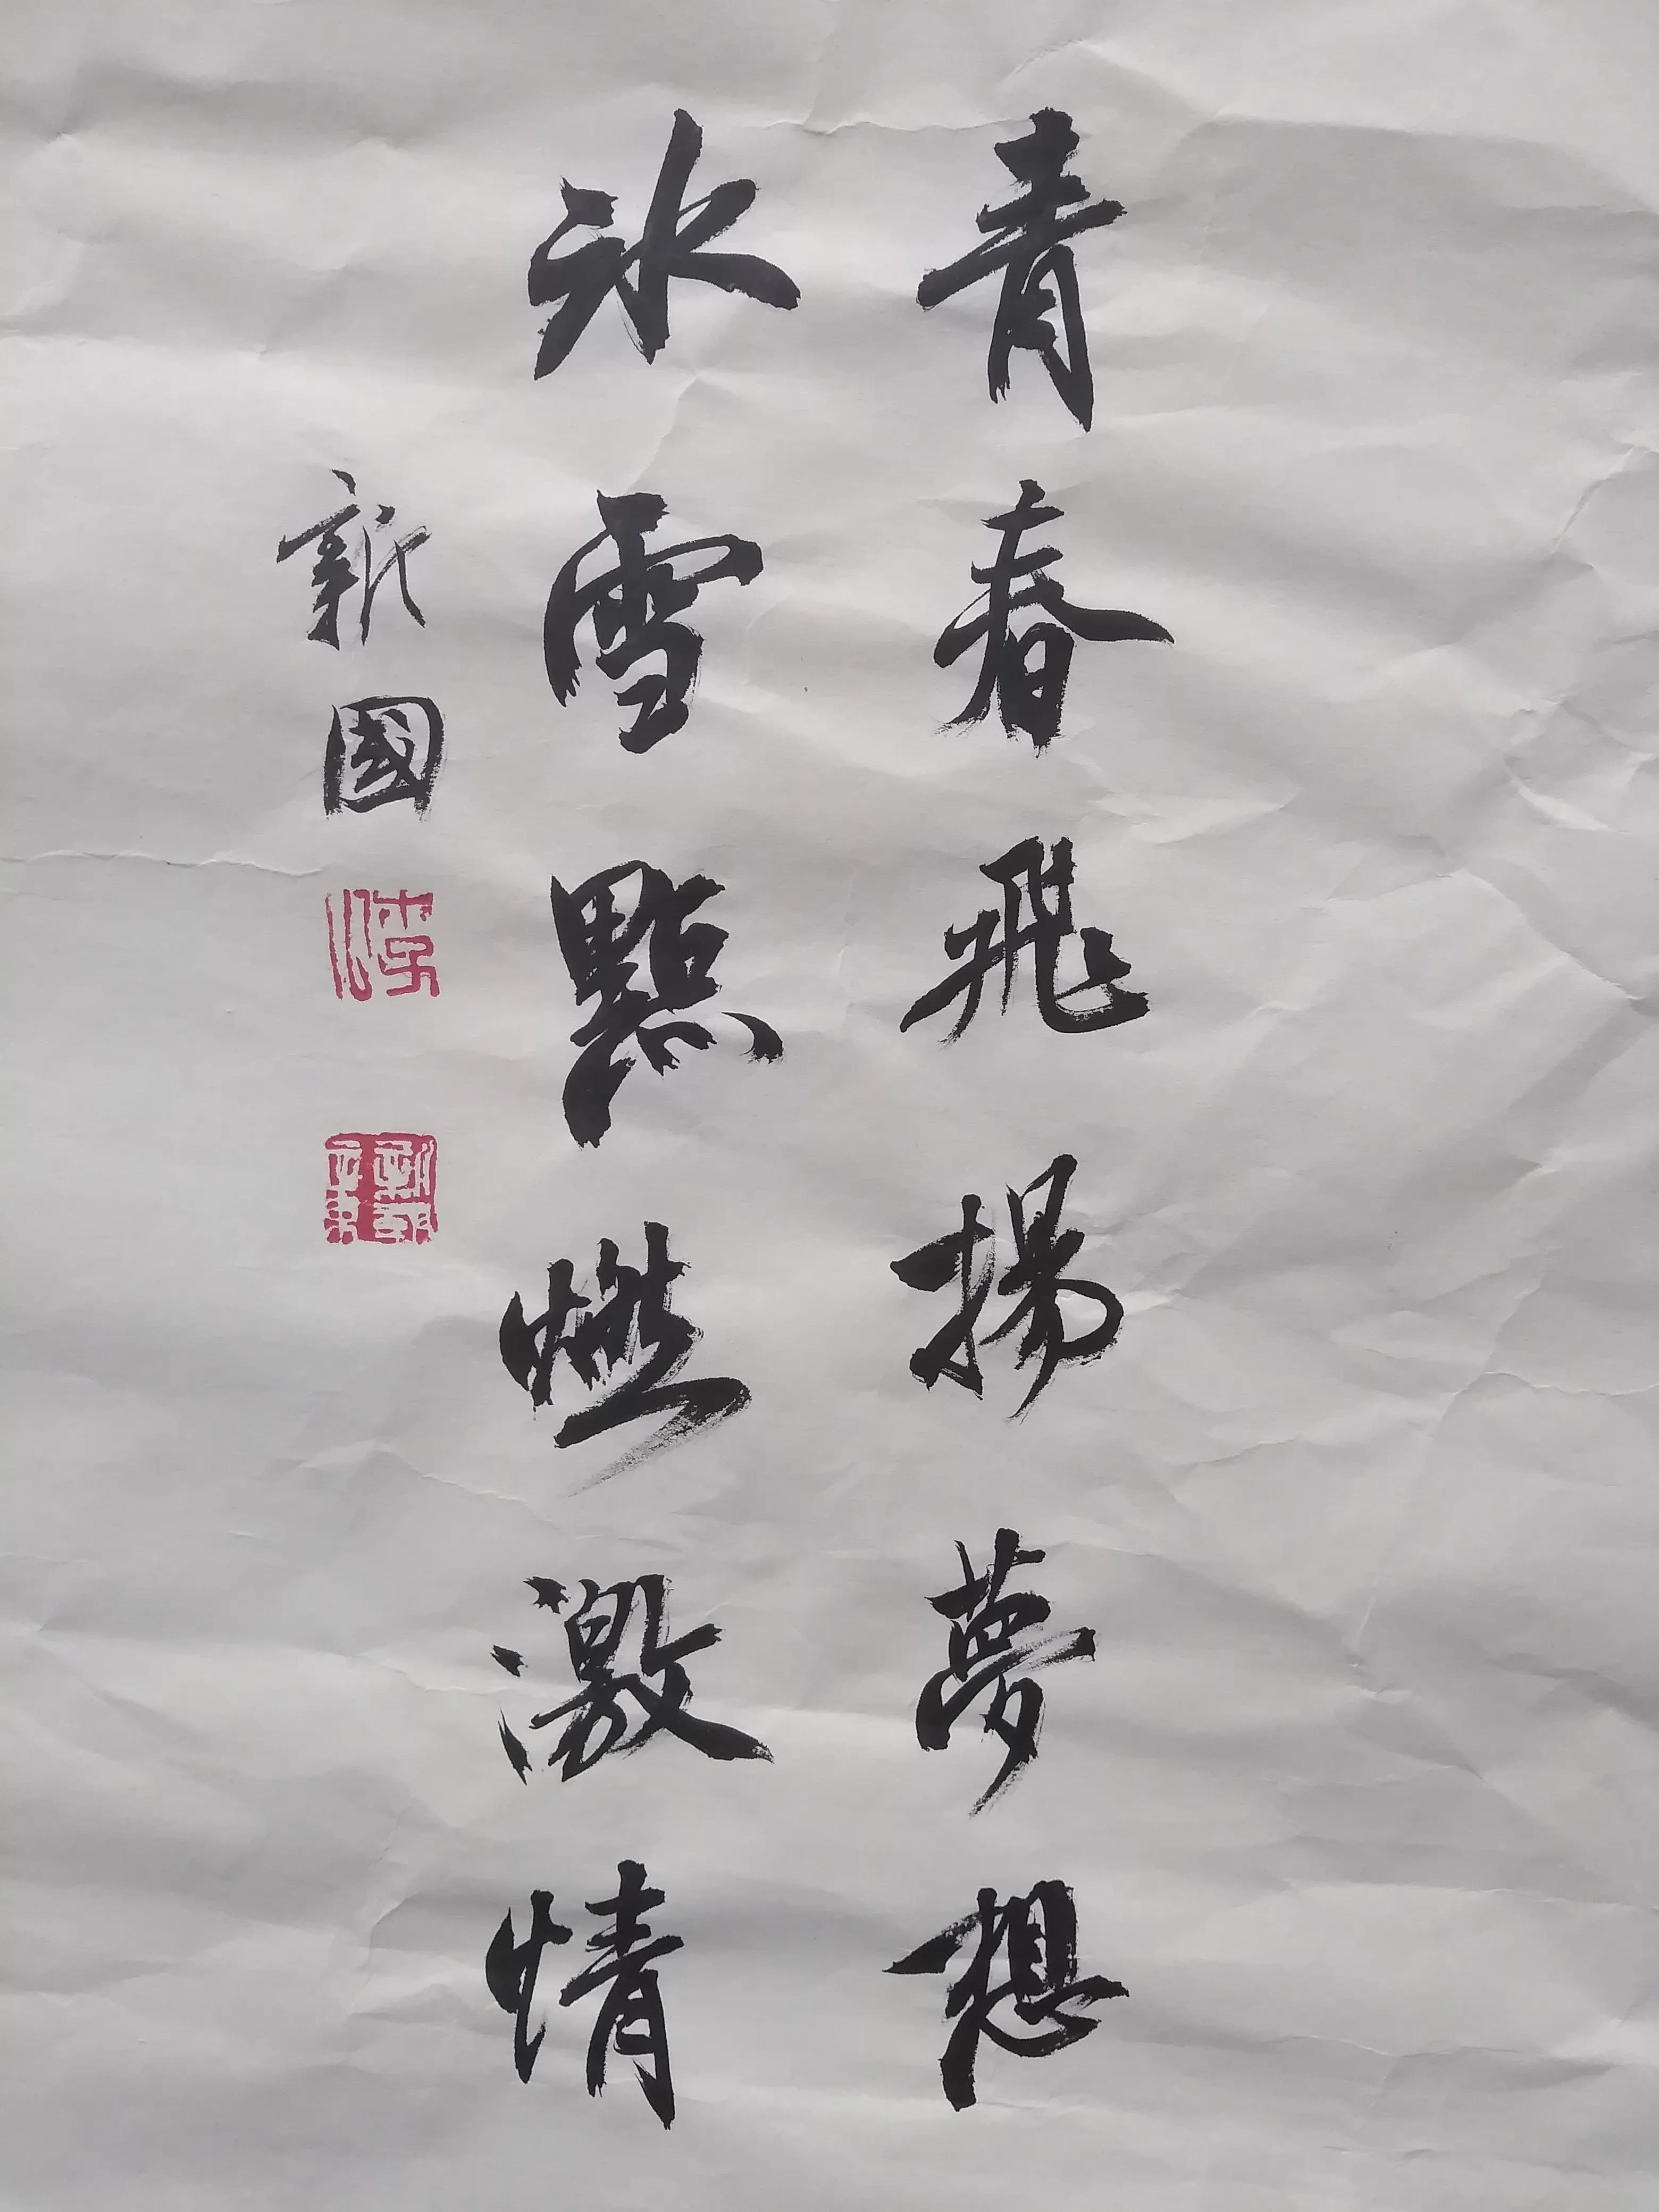 青春飛揚夢想
冰雪點燃激情
新國